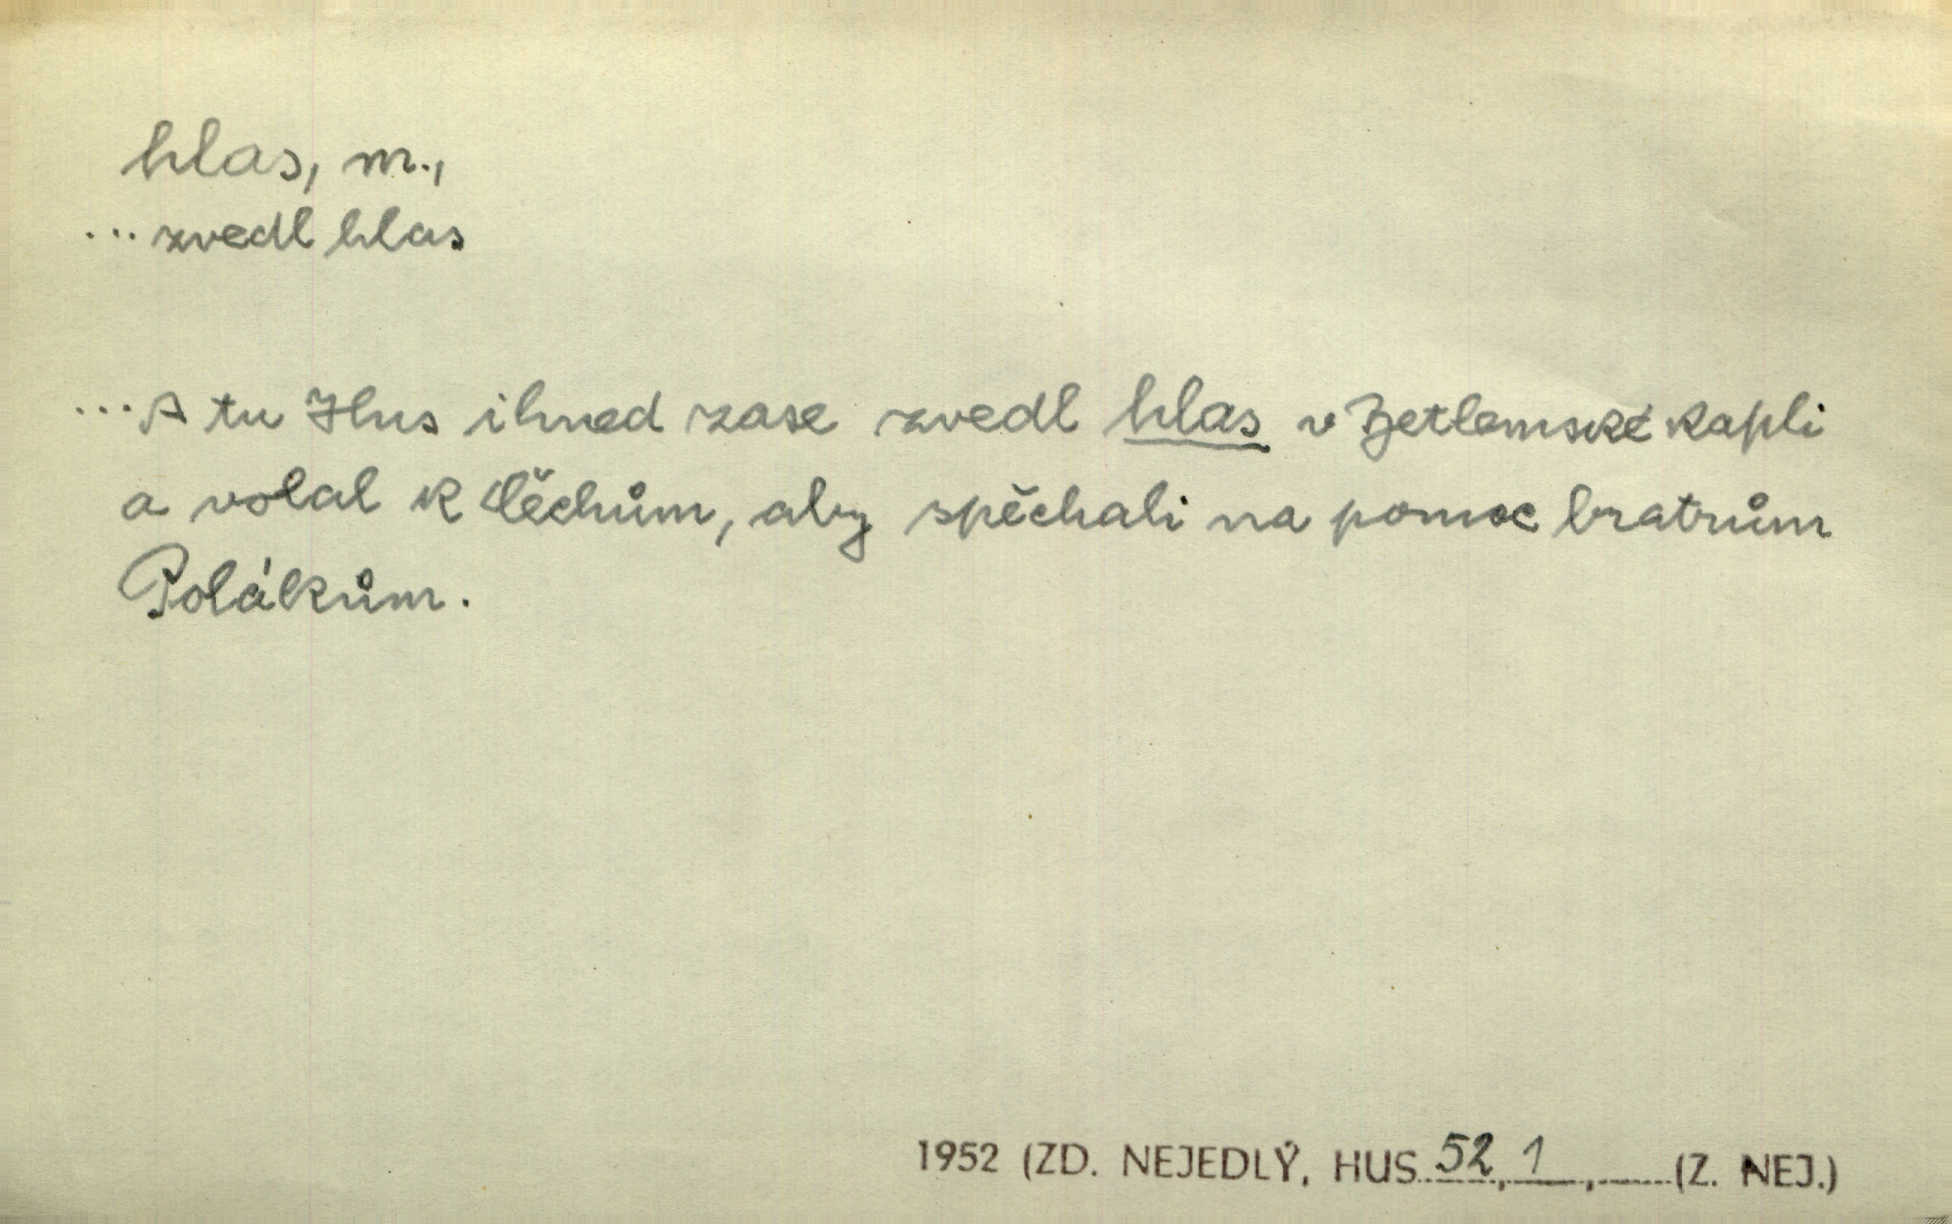 hlas, m.,
... zvedl hlas
... A tu Hus ihned zase zvedl hlas v Betlemské kapli
a volal k Čechům, aby spěchali na pomoc bratrům
Polákům.
1952 (ZD. NEJEDLÝ, HUS 52, 1, (Z. NEJ.)